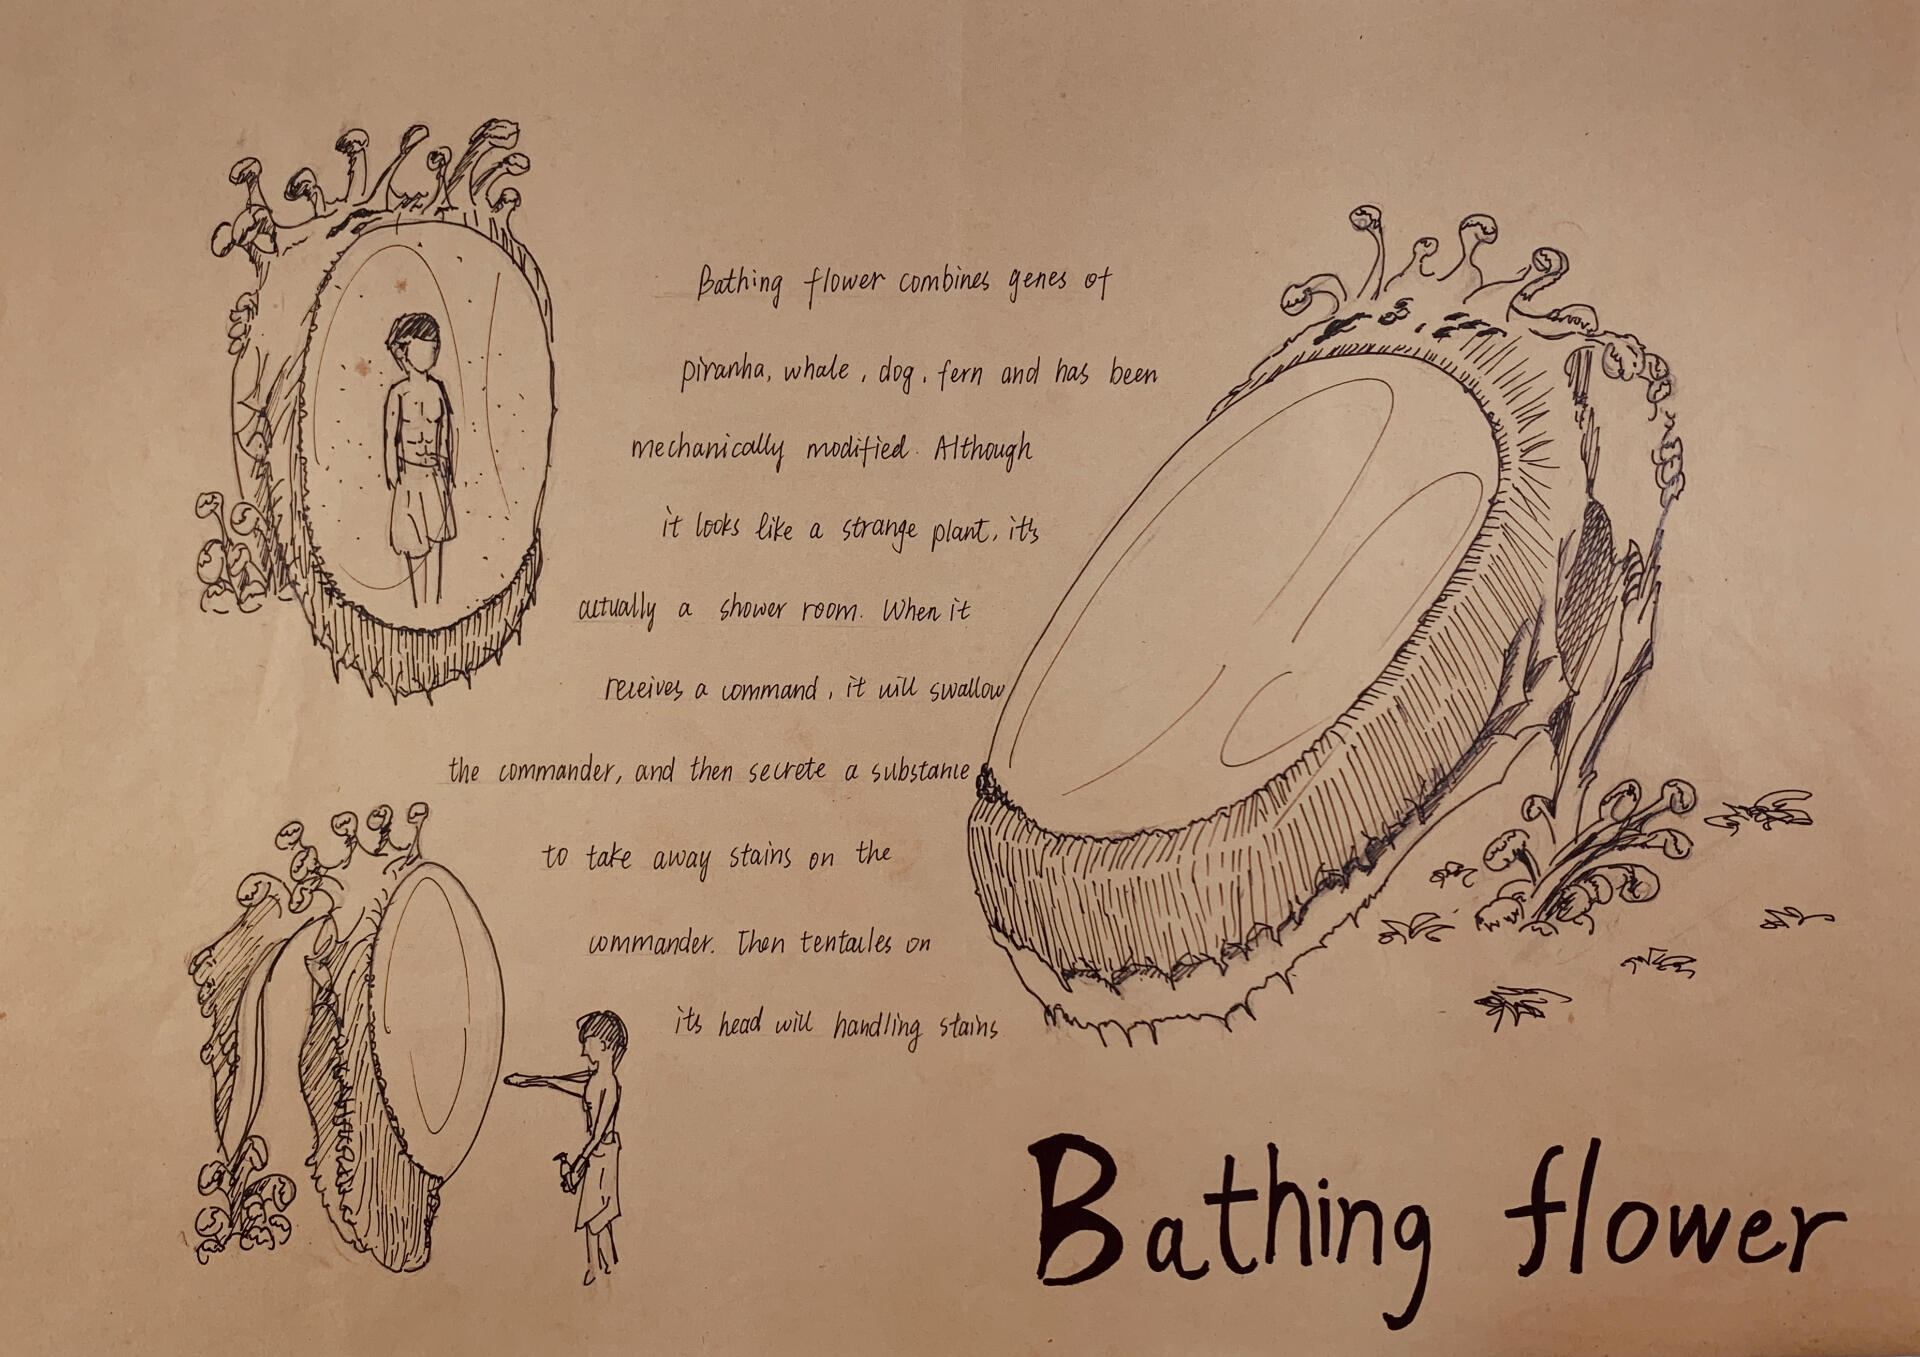 Bathing flower combines genes of
piranha, whale, dog, fern and has been
mechanically modified. Although
it looks like a strange plant, it's
actually a shower room. When it
receives a command, it will swallow
the commander, and then secrete a substance
to take away stains on the
commander. Then tentacles on
its head will handling stains
Bathing flower